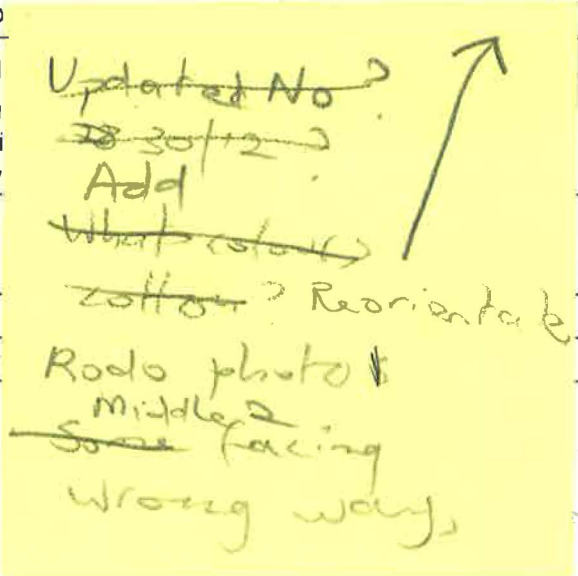 Updated No ?
30/12 ?
Add
What colour
cotton ? Reorientate
Rodo photos
Middle 2
Some facing
wrong way,